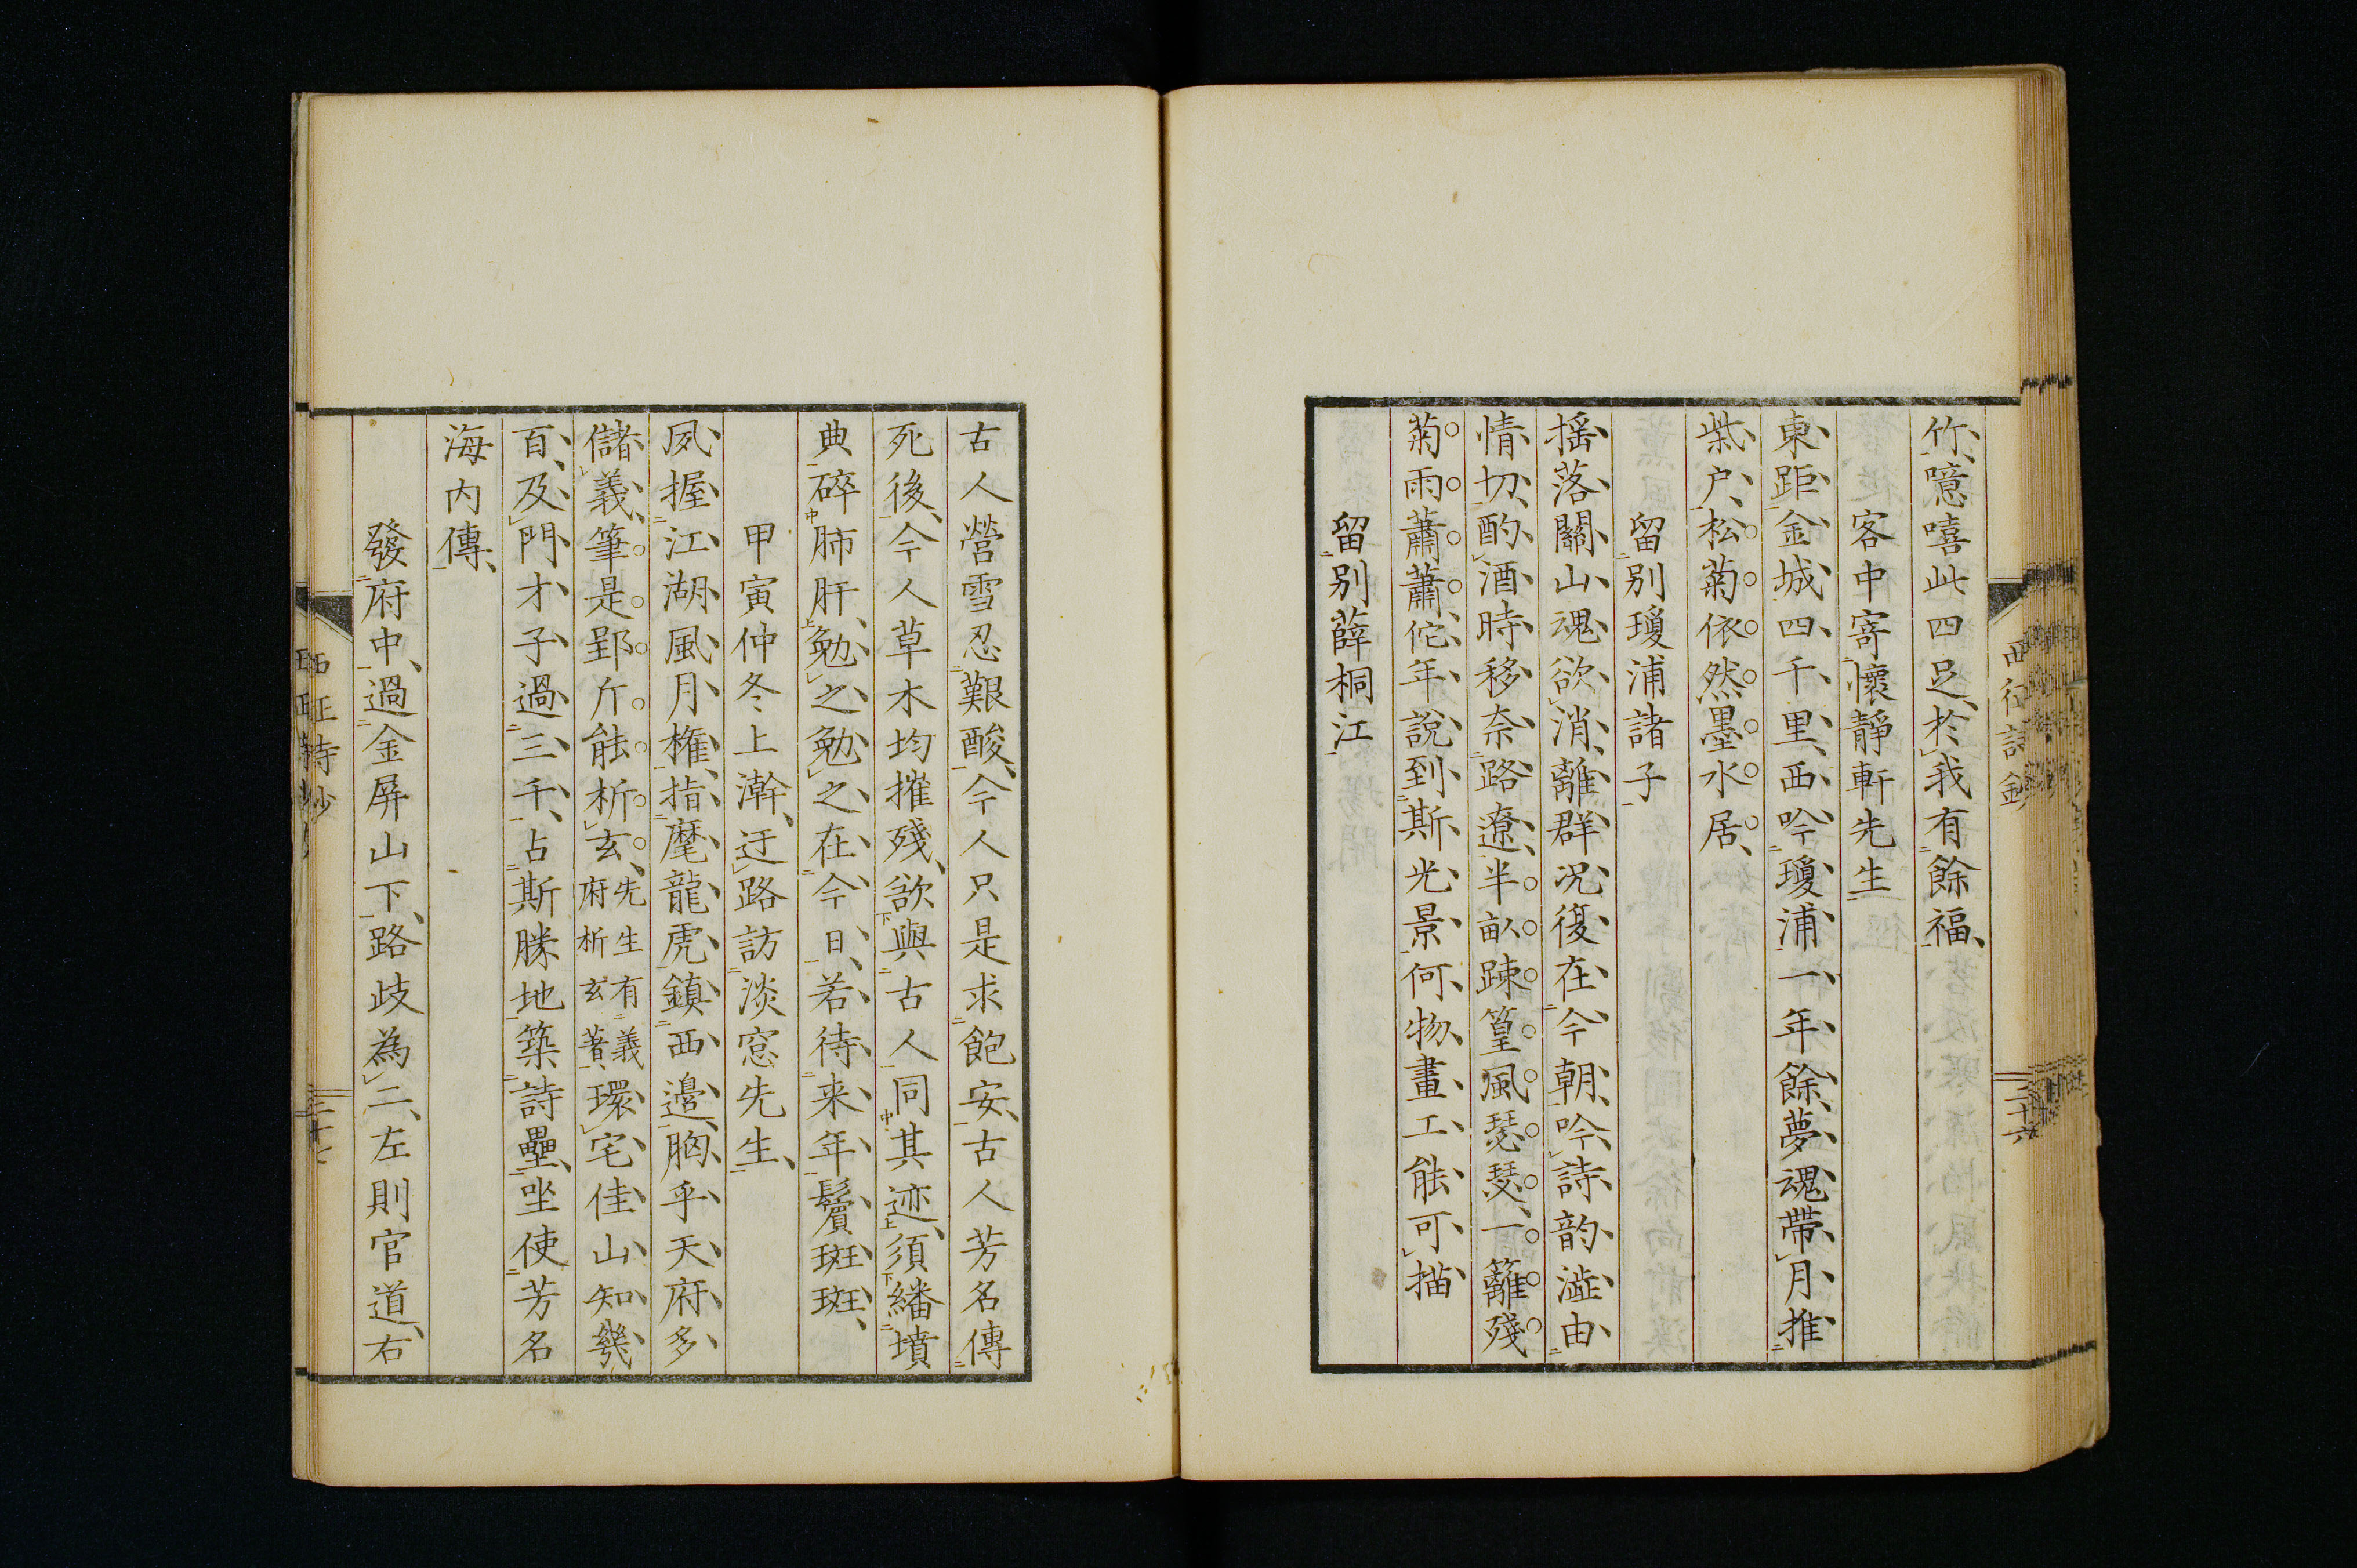 竹噫嘻此四足於我有餘福
客中寄懷靜軒先生
東距金城四千里西吟瓊浦一年餘夢魂帶月推
柴户松菊依然墨水居
留別瓊浦諸子
揺落關山魂欲消離群况復在今朝吟詩韵澁由
情切酌酒時移奈路遼半畝踈篁風瑟瑟一籬殘
菊雨蕭蕭佗年說到斯光景何物畫工能可描
留別薛桐江
古人營雪忍艱酸今人只是求飽安古人芳名傳
死後今人草木均摧殘欲與古人同其迹須繙墳
典碎肺肝勉之勉之在今日若待来年鬢斑斑
甲寅仲冬上澣迂路訪淡窓先生
夙握江湖風月權指麾龍虎鎮西邉胸乎天府多
儲義筆是郢斤能析玄先生有義府析玄著環宅佳山知幾
百及門才子過三千占斯勝地築詩壘坐使芳名
海内傳
發府中過金屏山下路歧為二左則官道右